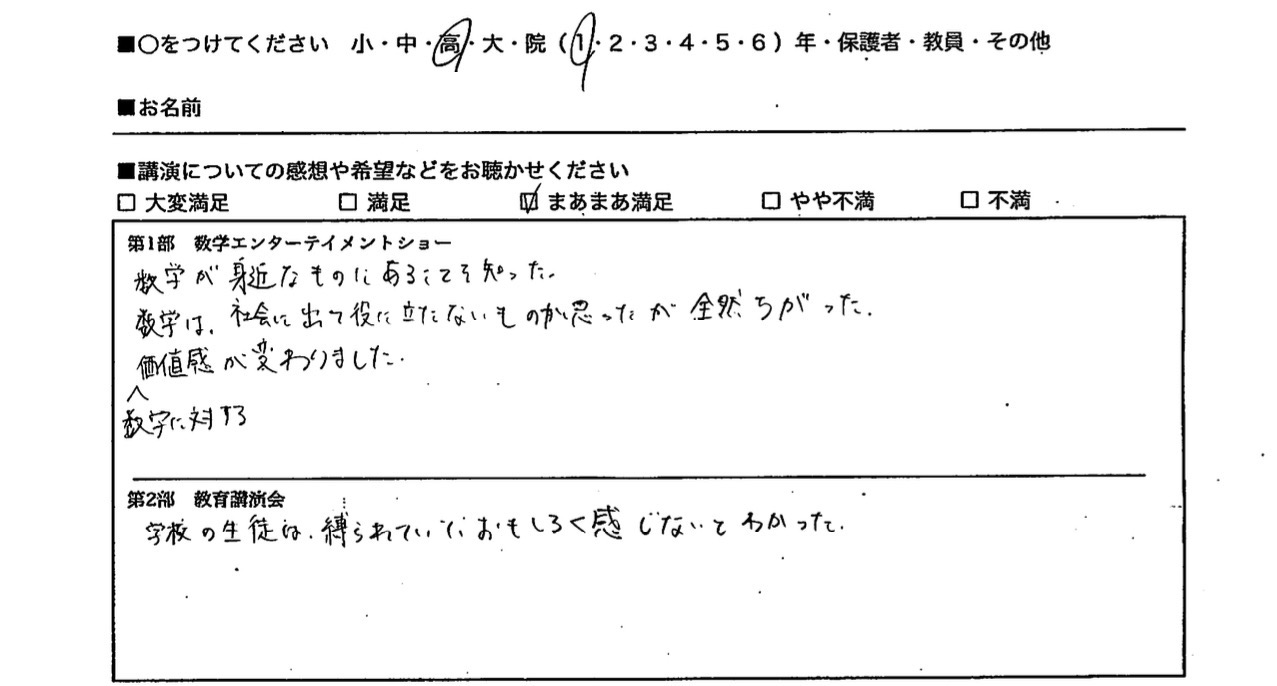 ■○をつけてください 小・中・高・大・院（1・2・3・4・5・6）年・保護者・教員・その他
■お名前
■講演についての感想や希望などをお聴かせください
□ 大変満足 □ 満足 ☑ まあまあ満足 □ やや不満 □ 不満
第1部 数学エンターテイメントショー
数学が身近なものにあることを知った。
数学は、社会に出て役に立たないものか思ったが全然ちがった。
価値感が変わりました。
＾
数学に対する
第2部 教育講演会
学校の生徒は、縛られていて おもしろく感じないとわかった。